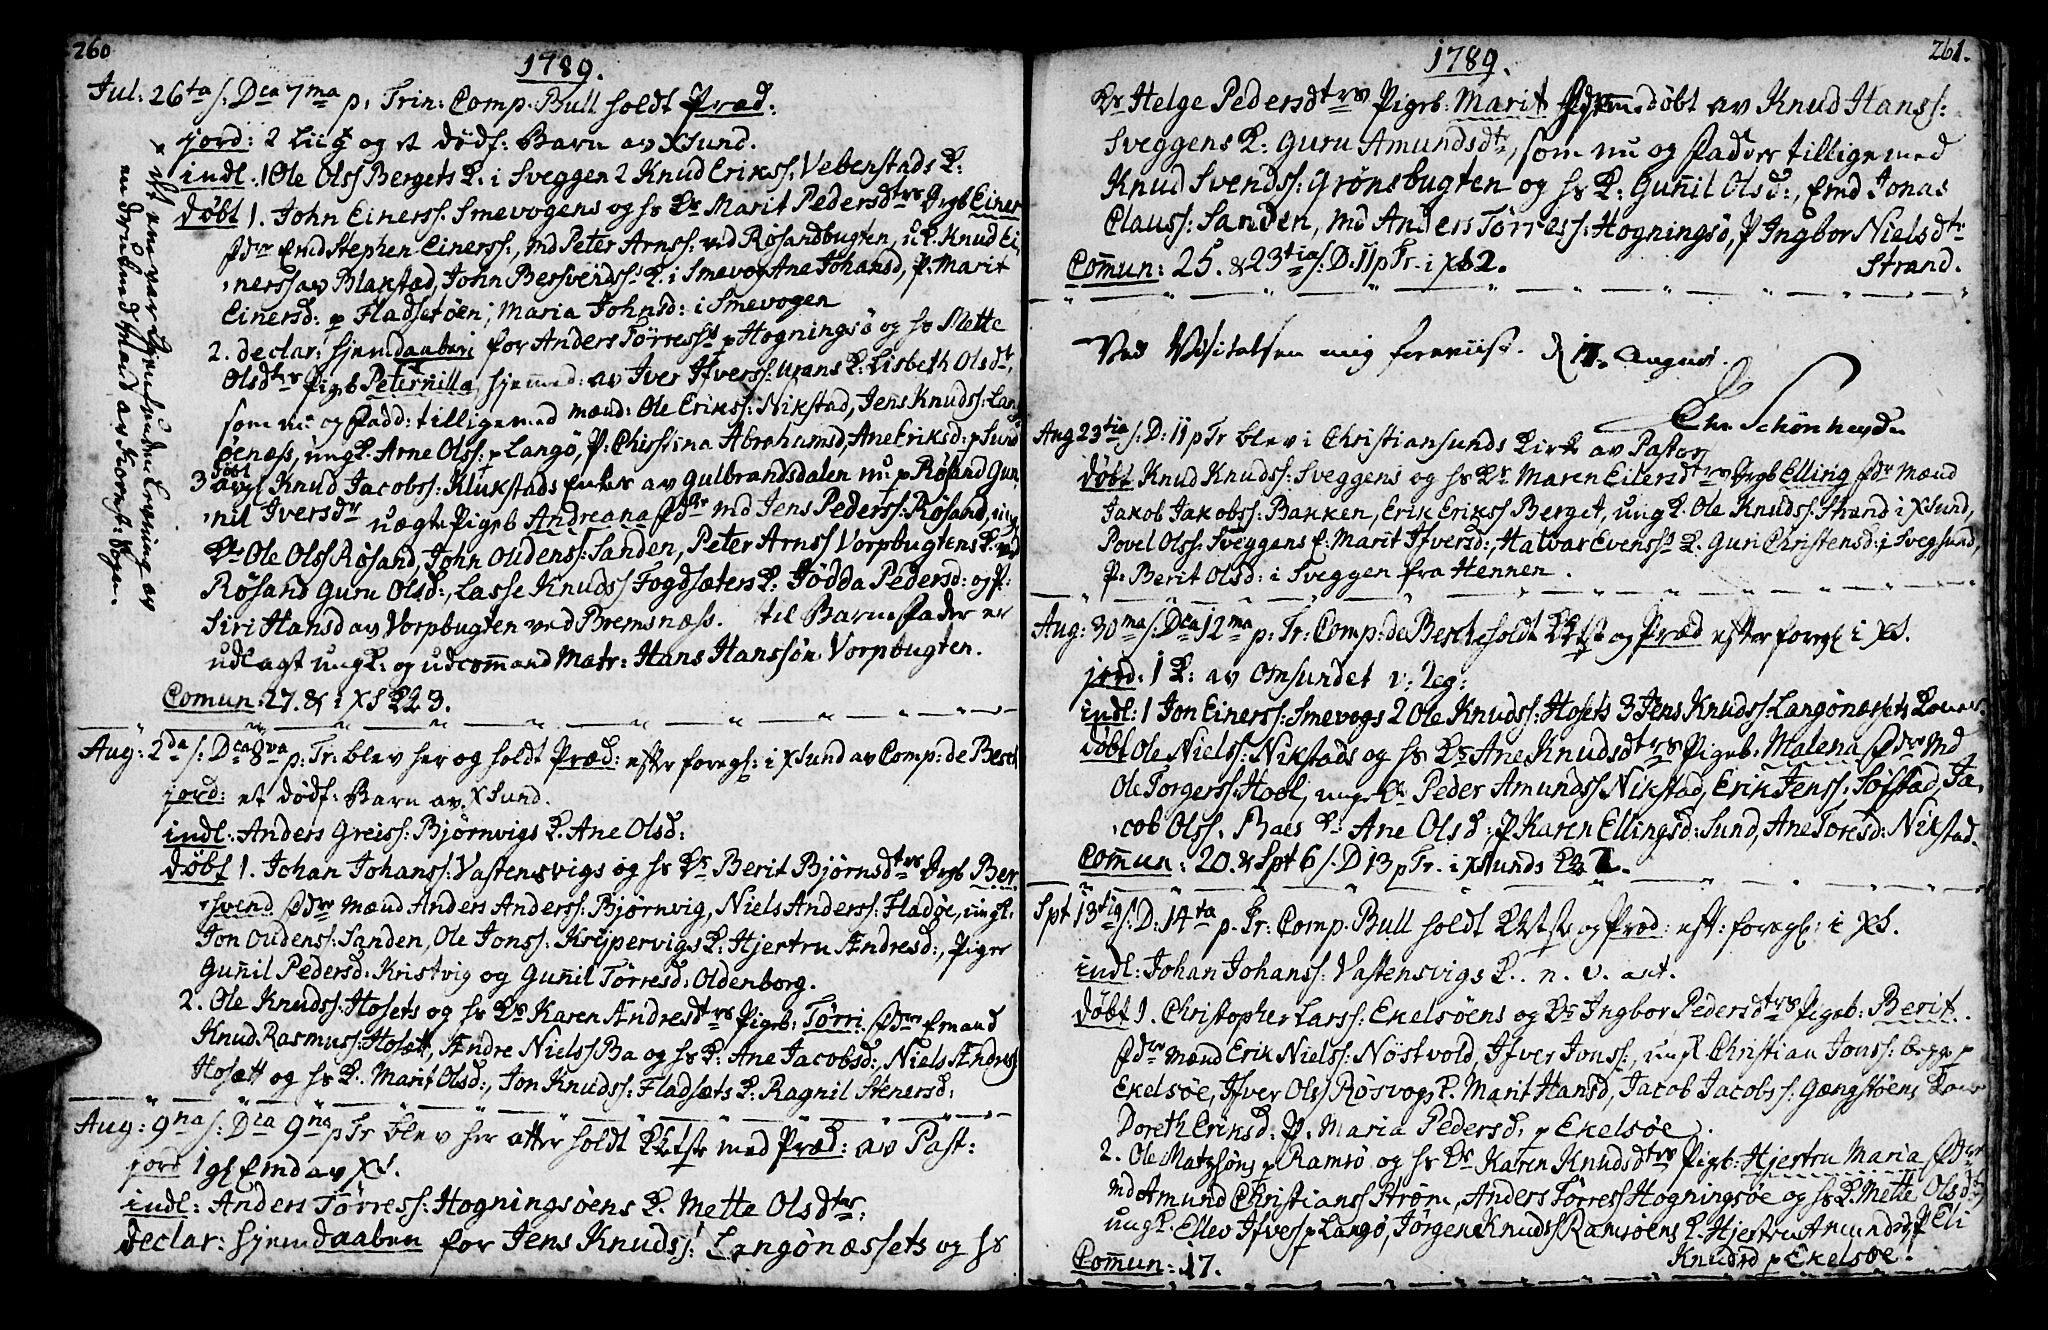 260
1789.
Jul: 26ta s: Dca 7ma p: Trin: Comp. Bull holdt Præd:
jord: 2 Liig og et dødf: Barn av XSund.
indl. 1 Ole Olss Bergets K: i Sveggen 2 Knud Erikss: Vebenstads K:
døbt 1. John Einerss: Smevogens og hs Ks Marit Pedersdtrs Drgb Einer
fdre Emd Stephen Einerss:, md Peter Arnss: ved Røsandbugten, u.K. Knud Ei
nerss av Blakstad, John Bersvendss K. i Smevog Ane Johansd, P: Marit
Einersd: p Fladsetøen, Maria Johnsd: i Smevogen
2. declar: hjemdaaben for Anders Tørress p Hogningsø og hs Mette
Olsdtrs Pigeb Peternilla hjemmed: av Iver Ifverss: Urans K: Lisbeth Olsdtr,
som nu og Fadd: tillige med mænd: Ole Erikss: Nikstad, Jens Knudss: Lang
øenæss, ungK: Arne Olss: p Langø, P: Christina Abrahamsd, Ane Eriksd: p Sund
3 døbt av Knud Jacobss: Klukstads Enke av Gulbrandsdalen nu p Røsand Gun
nil Iversdtr uægte Pigeb Andreana fdre md Jens Pederss: Røsand, ung
K: Ole Olss Røsand, John Oudenss: Sanden, Peter Arnss Vorpbugtens K. ved
Røsand Guru Olsd:, Lasse Knudss Fogdsæters K. Jødda Pedersd: og P:
Siri Hansd av Vorpbugten ved Bremsnæss. til Barnefader er
udlagt ungK: og udcommand Matr: Hans Hanssøn Vorpbugten.
Comun: 27. & i XS K 23.
Aug: 2da s: Dca 8va p: Tr: blev her og holdt Præd: efter foregl: i XSund av Comp: de Besch
jord: et dødf: Barn av XSund.
indl: Anders Greiss: Bjørnvigs K. Ane Olsd:
døbt 1. Johan Johanss: Vastensvigs og hs Ks Berit Bjørnsdtrs Drgb Ber
svend fdre mænd Anders Anderss: Bjørnvig, Niels Anderss: Fladøe, ungk:
Jon Oudenss: Sanden, Ole Jonss: Krypervigs K: Hjertru Andresd:, Piger
Gunnil Pedersd: Kristvig og Gunnil Tørresd: Oldenborg.
2. Ole Knudss: Hosets og hs Ks Karen Andresdtrs Pigeb: Tørri fdre Emand
Knud Rasmuss: Hosætt, Andre Nielss Ba og hs K: Ane Jacobsd:, Niels Andress
Hosætt og hs K. Marit Olsd:, Jon Knudss: Fladsæts K: Ragnil Stenersd:
Aug: 9na s: Dca 9na p Tr blev her atter holdt med Præd: av Past:
jord 1 gl Emd av XS.
indl: Anders Tørress: Hogningsøens K. Mette Olsdtr:
declar: hjemdaaben for Jens Knudss: Langønæssets og hs
261.
1789.
Ks Helge Pedersdtrs Pigeb: Marit hjemdøbt av Knud Hanss:
Sveggens K: Guru Amundsdtr, som nu og Fadder tillige med
Knud Svendss: Grønsbugten og hs K: Gunnil Olsd:, Emd Jonas
Clauss: Sanden, md Anders Tørress: Hogningsø, P Ingbor Nielsdtr
Strand.
Commun: 25. & 23tia s: D: 11 p Tr. i XS 2.
Ved Visitatsen mig foreviist. d 17. August.
Chr. Schønheyder
Aug 23tia s: D: 11 p Tr blev i Christiansunds Kirke av Pastor
døbt Knud Knudss: Sveggens og hs Ks Maren Eilersdtrs Drgb Elling fdr mænd
Jakob Jakobss: Bakken, Erik Erikss Berget, ungK. Ole Knudss: Strand i XSund,
Povel Olss: Sveggens K: Marit Ifversd:, Halvar Evenss K. Guri Christensd: i Svegsund,
P: Berit Olsd: i Sveggen fra Hennen.
Aug: 30ma s: Dca 12ma p: Tr: Comp: de Besche holdt og Præd efter foregl i XS.
jord. 1 K: av Omsundet v: Leg:
indl: 1 Jon Einerss: Smevogs 2 Ole Knudss: Hosets 3 Jens Knudss Langønæssets Koner.
døbt Ole Nielss: Nikstads og hs Ks Ane Knudsdtrs Pigeb. Malena fdre Md
Ole Torgerss: Hool, ungK Peder Amundss Nikstad, Erik Jenss: Sofstad, Ja
cob Olss. Baes K: Ane Olsd: P Karen Ellingsd: Sund, Ane Toresd: Nikstad.
Commun: 20. & Spt 6 s: D 13 p Tr. i XSunds K
Spt 13tia s: D: 14ta p. Tr: Comp: Bull holdt og Præd: eft: foregl: i XS.
indl: Johan Johanss: Vastensvigs K.
døbt 1. Christopher Larss: Ekelsøens og Ks Ingbor Pedersdtrs Pigeb: Berit.
fdre mænd Erik Nielss: Nøstvold, Ifver Jonss:, ungK Christian Jonss: begge p
Ekelsøe, Ifver Olss Røsvogs K. Marit Hansd, Jacob Jacobss: Gængstøens Kone
Doreth Eriksd: P. Maria Pedersd: p Ekelsøe.
2. Ole Matzsøns p Ramsø og hs Ks Karen Knudsdtrs Pigb: Hjertru Maria fdre
md Amund Christianss Strøm, Anders Tørress Hogningsøe og hs K. Mette Olsdtr,
ungK. Ellev Ifvers p Langø, Jørgen Knudss Ramsøens K. Hjertru Amundsd, P Eli
Knudsd p Ekelsøe.
Commun: 17.